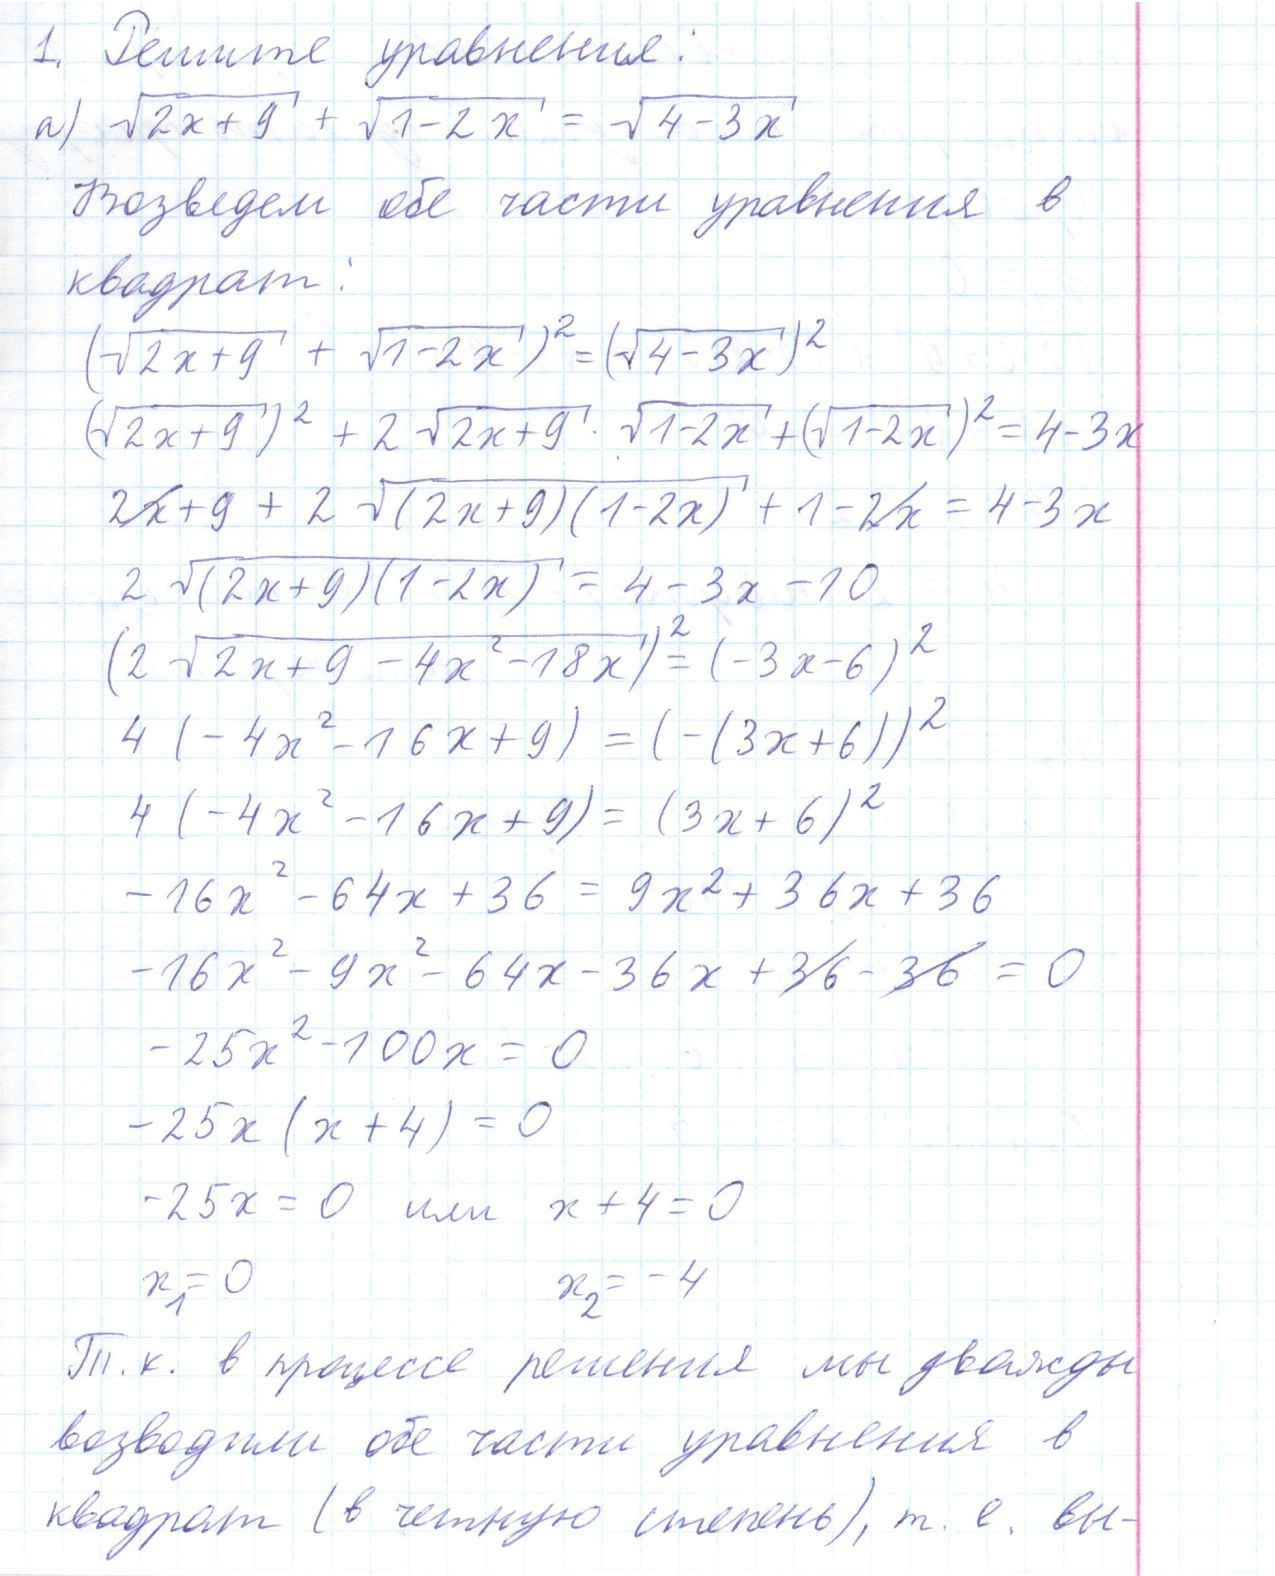 1. Решите уравнения:
а) √(2x+9) + √(1-2x) = √(4-3x)
Возведем обе части уравнения в
квадрат:
(√(2x+9) + √(1-2x))² = (√(4-3x))²
(√(2x+9))² + 2√(2x+9) · √(1-2x) + (√(1-2x))² = 4-3x
2x+9 + 2√((2x+9)(1-2x)) + 1-2x = 4-3x
2√((2x+9)(1-2x)) = 4-3x-10
(2√(2x+9-4x²-18x))² = (-3x-6)²
4(-4x²-16x+9) = (-(3x+6))²
4(-4x²-16x+9) = (3x+6)²
-16x²-64x+36 = 9x²+36x+36
-16x²-9x²-64x-36x+36-36 = 0
-25x²-100x = 0
-25x(x+4) = 0
-25x = 0 или x+4 = 0
x₁ = 0 x₂ = -4
Т.к. в процессе решения мы дважды
возводили обе части уравнения в
квадрат (в четную степень), т. е. вы-